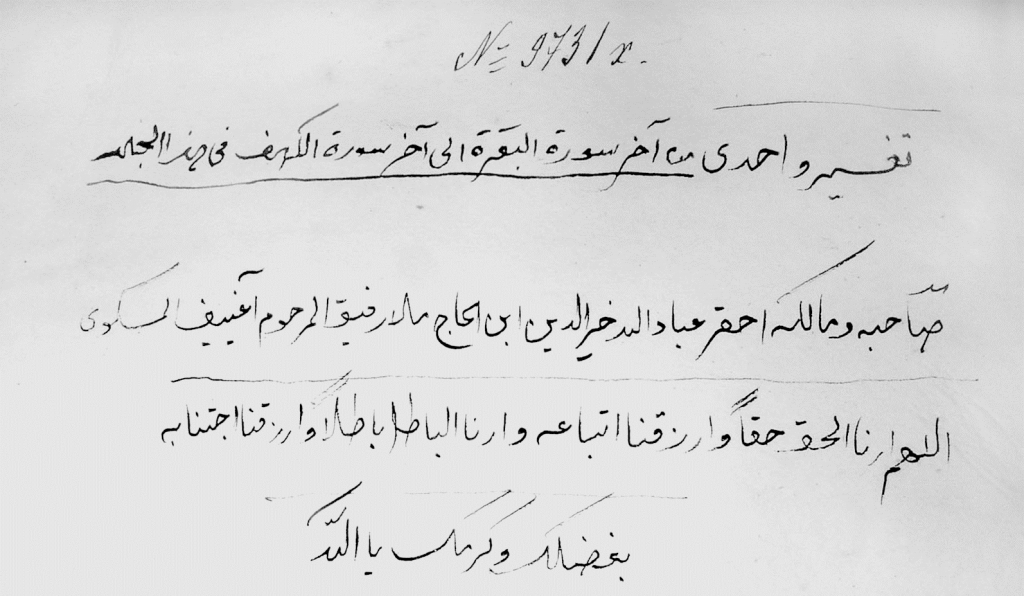 № 9731 x.
تفسير واحدى من آخر سورة البقرة الى آخر سورة الكهف فى هذا المجلد
صاحبه ومالكه احقر عباد الله خير الدين ابن الحاج ملا رفيق المرحوم آغييف المسكوى
اللهم ارنا الحق حقاً وارزقنا اتباعه وارنا الباطل باطلاً وارزقنا اجتنابه
بفضلك وكرمك يا الله